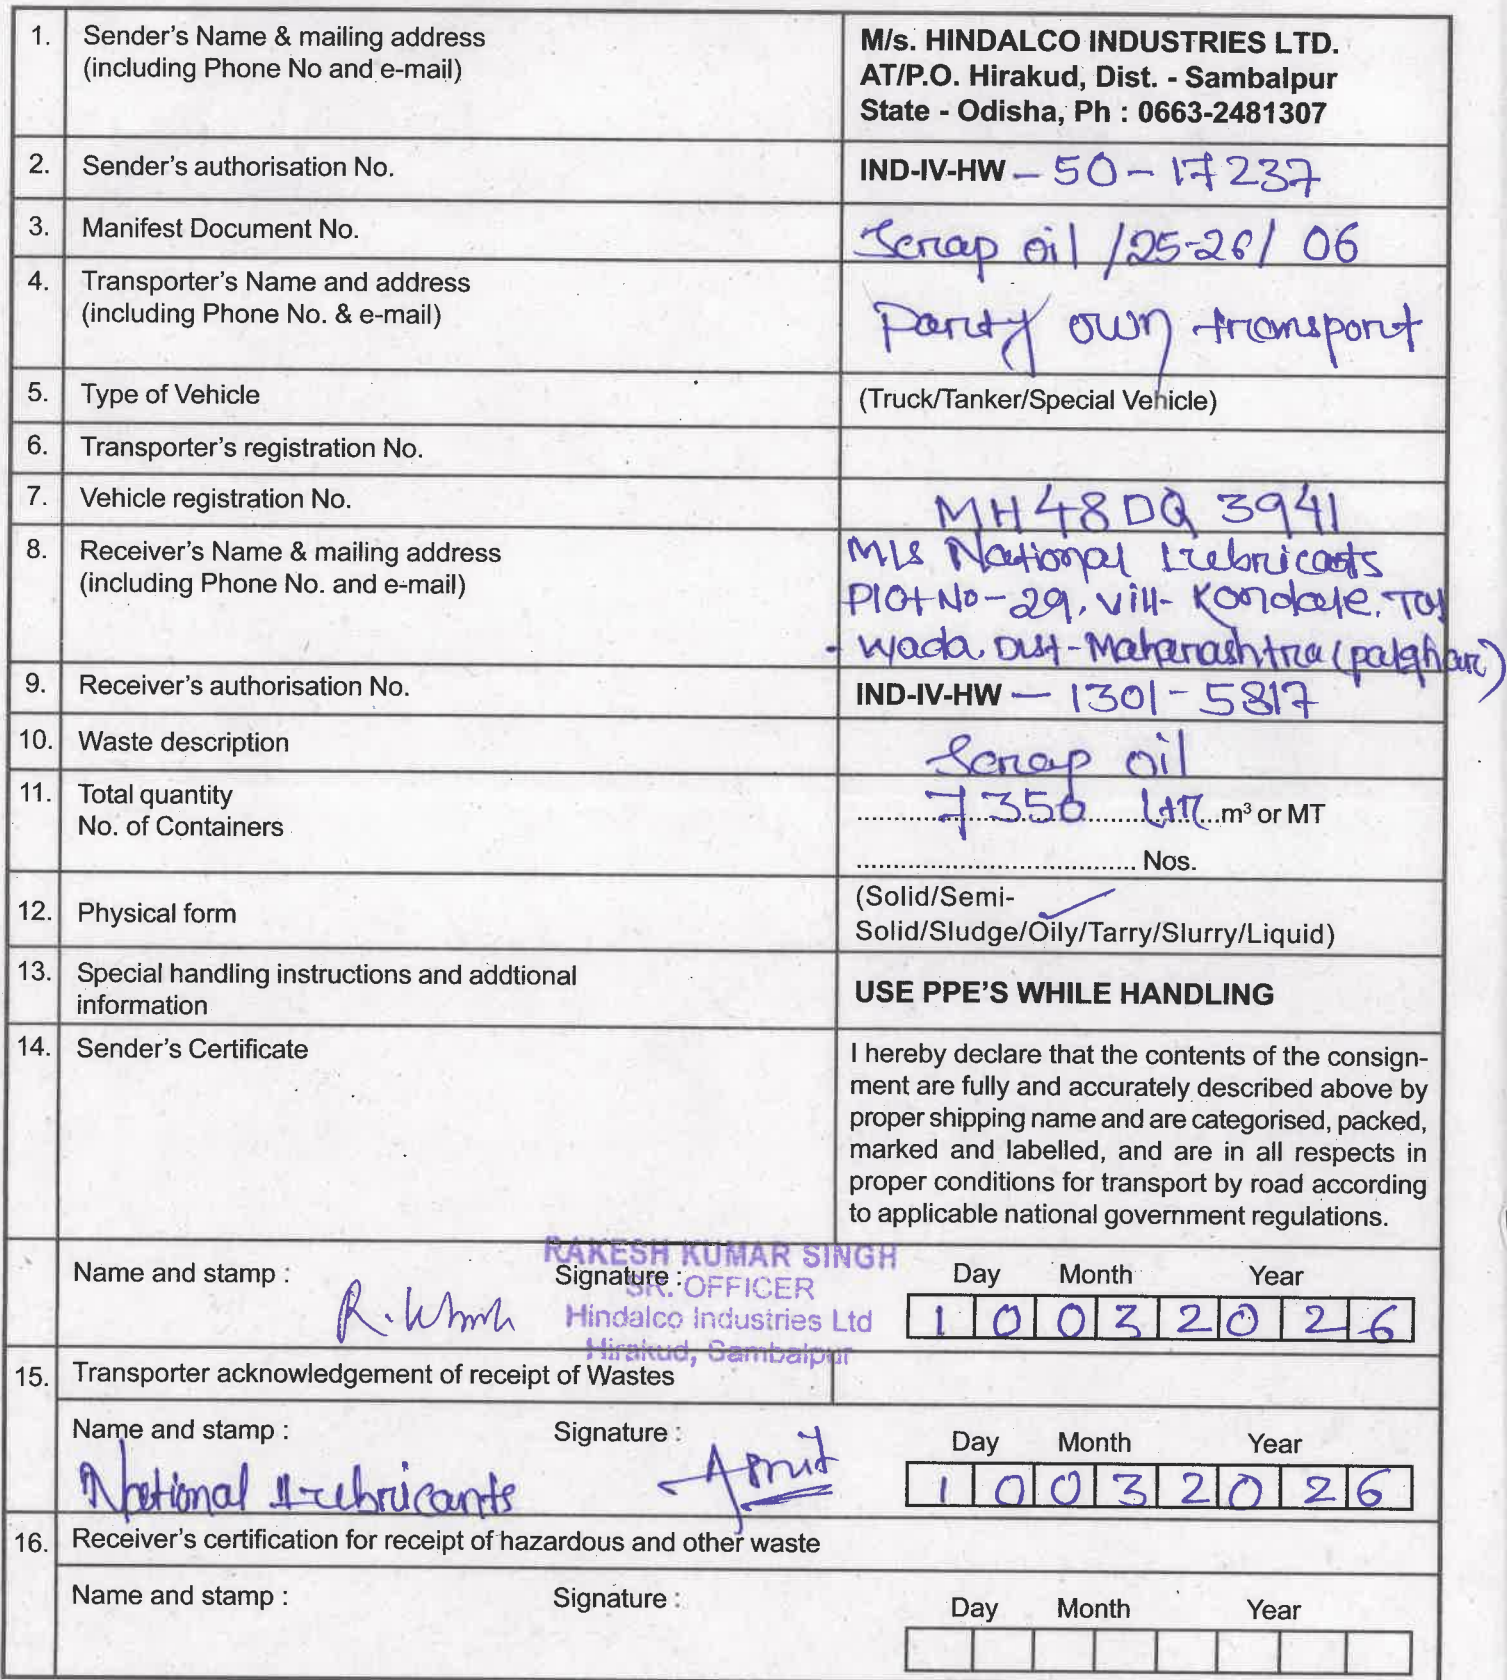 1. Sender's Name & mailing address
(including Phone No and e-mail)
M/s. HINDALCO INDUSTRIES LTD.
AT/P.O. Hirakud, Dist. - Sambalpur
State - Odisha, Ph : 0663-2481307
2. Sender's authorisation No.
IND-IV-HW – 50 – 17237
3. Manifest Document No.
Scrap oil /25-26/ 06
4. Transporter's Name and address
(including Phone No. & e-mail)
Party own transport
5. Type of Vehicle
(Truck/Tanker/Special Vehicle)
6. Transporter's registration No.
7. Vehicle registration No.
MH48DQ 3941
8. Receiver's Name & mailing address
(including Phone No. and e-mail)
M/s National Lubricants
Plot No-29, Vill- Kondale, Tal
- Wada, Dist-Maharashtra (palghar)
9. Receiver's authorisation No.
IND-IV-HW – 1301 - 5817
10. Waste description
Scrap oil
11. Total quantity
No. of Containers
7350 Ltr m³ or MT
.................................... Nos.
12. Physical form
(Solid/Semi-
Solid/Sludge/Oily/Tarry/Slurry/Liquid)
13. Special handling instructions and addtional
information
USE PPE'S WHILE HANDLING
14. Sender's Certificate
I hereby declare that the contents of the consign-
ment are fully and accurately described above by
proper shipping name and are categorised, packed,
marked and labelled, and are in all respects in
proper conditions for transport by road according
to applicable national government regulations.
Name and stamp :
Signature :
RAKESH KUMAR SINGH
SR. OFFICER
Hindalco Industries Ltd
Hirakud, Sambalpur
Day Month Year
1 0 0 3 2 0 2 6
15. Transporter acknowledgement of receipt of Wastes
Name and stamp :
National Lubricants
Signature :
Day Month Year
1 0 0 3 2 0 2 6
16. Receiver's certification for receipt of hazardous and other waste
Name and stamp :
Signature :
Day Month Year